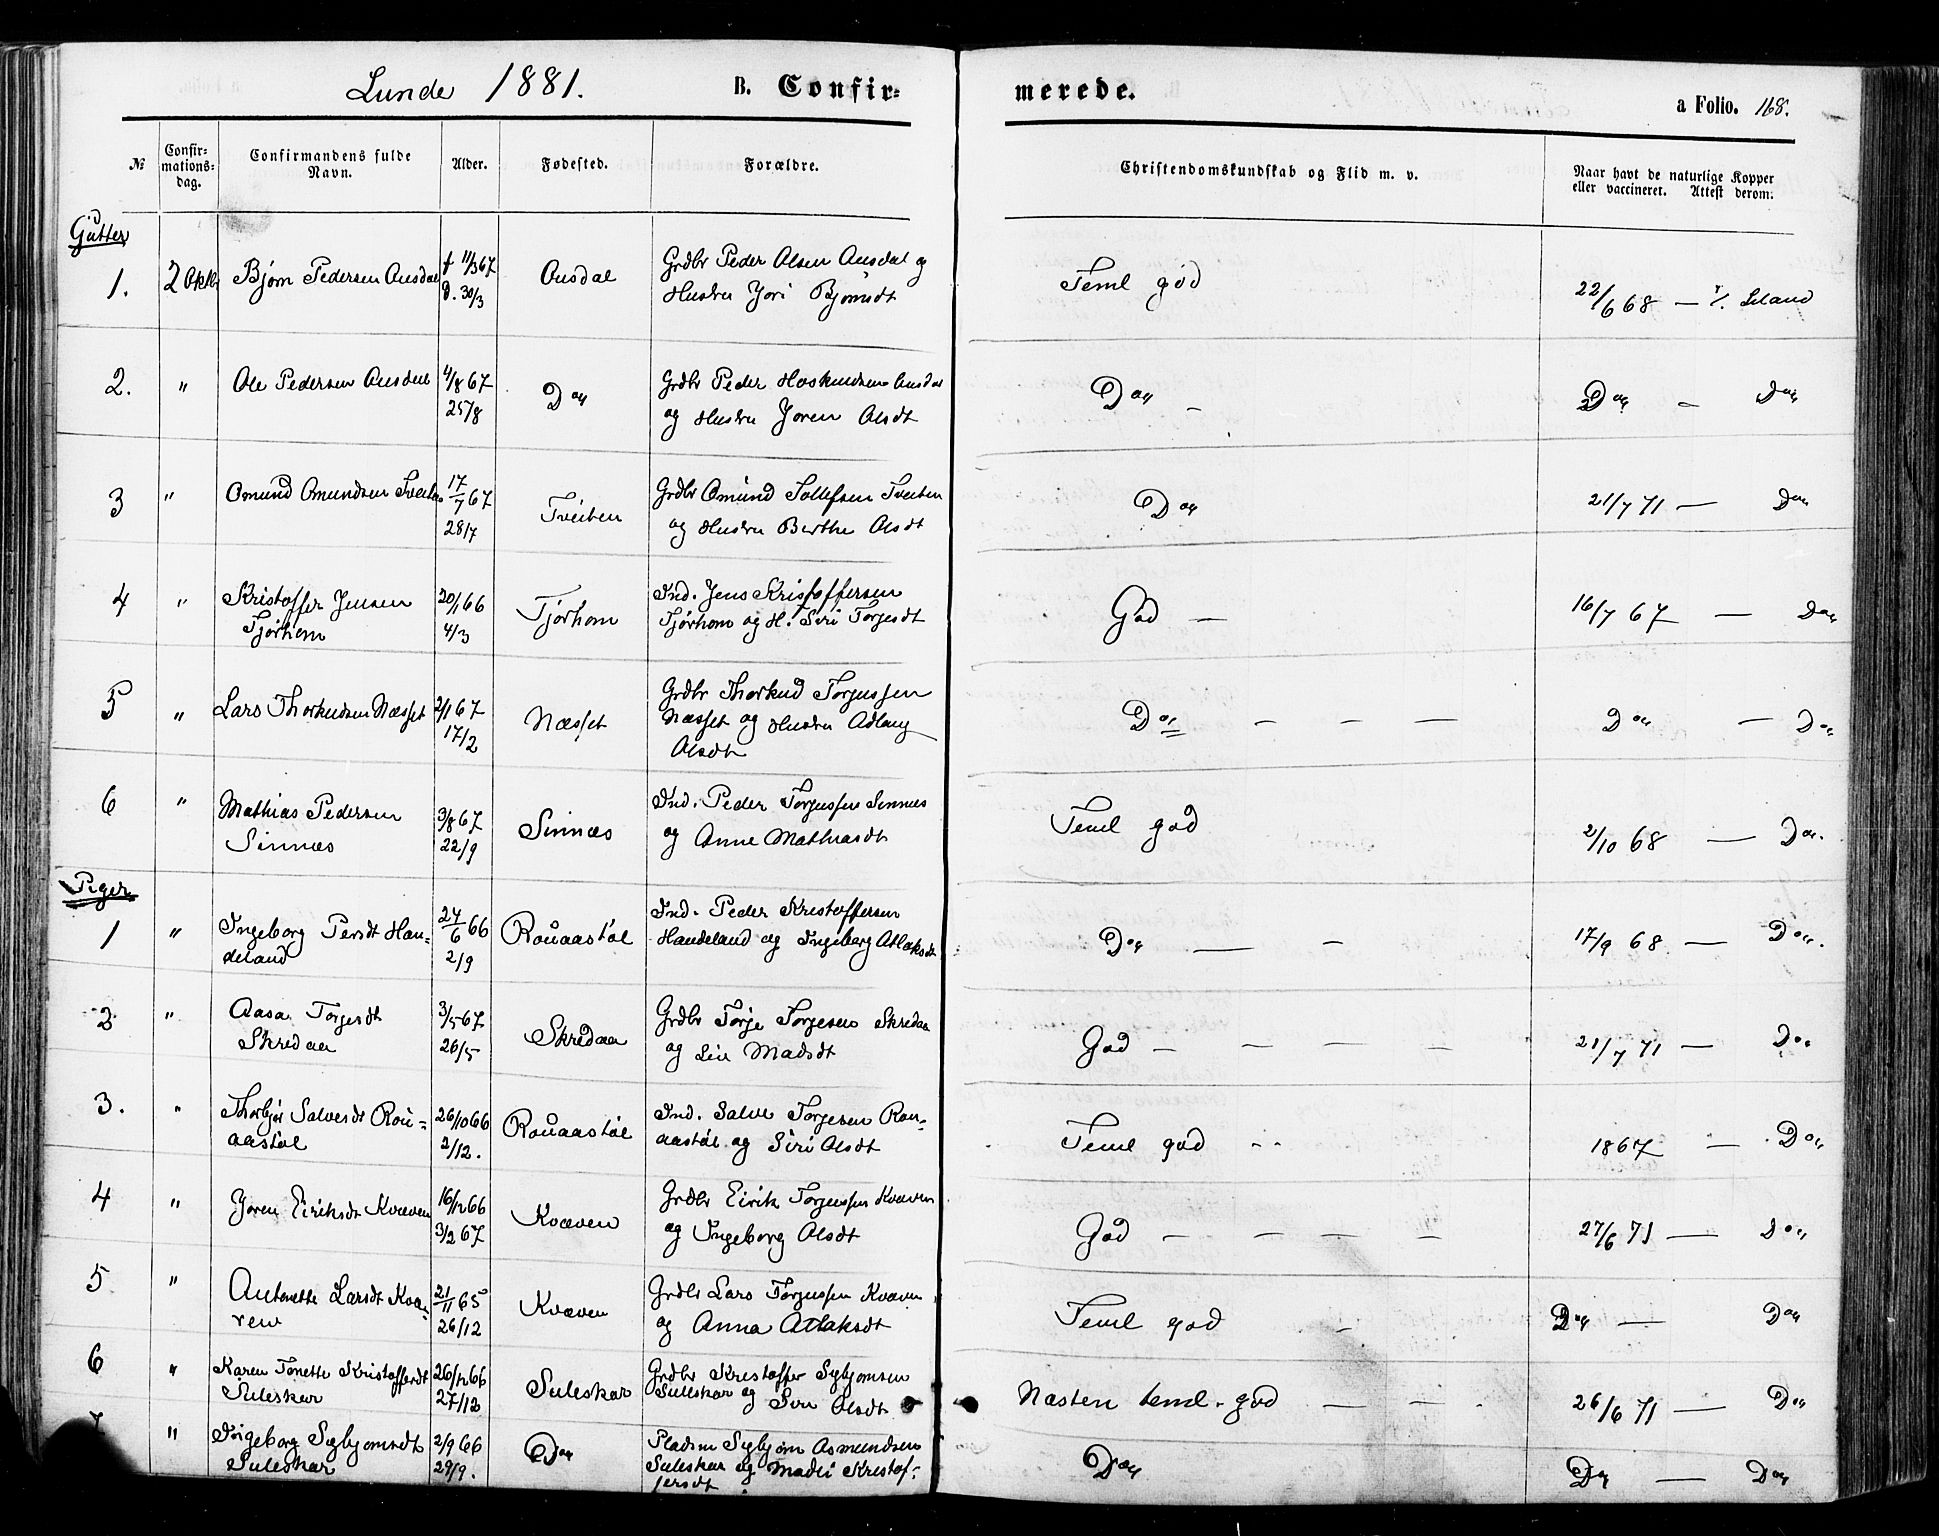 Lunde 1881. B. Confir-
merede.
a Folio. 168.
№
Confir-
mations-
dag.
Confirmandens fulde
Navn.
Alder.
Fødested.
Forældre.
Christendomskundskab og Flid m. v.
Naar havt de naturlige Kopper
eller vaccineret. Attest derom.
Gutter
1. 2 Oktbr Bjørn Pedersen Ousdal f 11/3 67 Ousdal Grdbr Peder Olsen Ousdal og Teml god 22/6 68 — Seland
d. 30/3 Hustru Jori Bjørnsdt
2. " Ole Pedersen Ousdal 4/8 67 Do Grdbr Peder Hoskuldsen Ousdal Do — Do — Do
25/8 og Hustru Joren Olsdt
3 " Omund Omundsen Tveiten 17/7 67 Tveiten Grdbr Omund Tollefsen Tveiten Do 21/7 71 — Do
28/7 og Hustru Berthe Olsdt
4 " Kristoffer Jensen 20/1 66 Tjørhom Ind. Jens Kristoffersen God — 16/7 67 — Do
Tjørhom 4/3 Tjørhom og H. Siri Torjesdt
5 " Lars Thorkildsen Næsset 2/1 67 Næsset Grdbr Thorkild Torjussen Do — — — Do — Do
17/2 Næsset og Hustru Adlaug
Olsdt
6 " Mathias Pedersen 3/8 67 Sinnæs Ind. Peder Torjussen Sinnæs Teml god 2/10 68 — Do.
Sinnæs 22/9 og Anne Mathiasdt
Piger
1 " Ingeborg Persdt Han- 24/6 66 Rouaastøl Ind. Peder Kristoffersen Do — — 17/9 68 — Do.
deland 2/9 Handeland og Ingeborg Atlaksdt
2 " Aasa Torjesdt 3/5 67 Skredaa Grdbr Torje Torjesen Skredaa God — — — — 21/7 71 — Do
Skredaa 26/5 og Siri Madsdt
3. " Thorbjør Salvesdt Rou- 26/10 66 Rouaastøl Ind. Salve Torjesen Rou- Teml god 1867 — Do
aastøl 2/12. aastøl og Siri Olsdt
4 " Joren Eiriksdt Kvæven 16/12 66 Kvæven Grdbr Eirik Torjussen Kvæven God — — — — 27/6 71 — Do
3/2 67 og Ingeborg Olsdt
5 " Antonette Larsdt Kvæ- 21/11 65 Kvæven Grdbr Lars Torjussen Kvæven Teml god — Do — Do
ven 26/12 og Anna Atlaksdt
6 " Karen Tonette Kristoffersdt 26/12 66 Suleskar Grdbr Kristoffer Sigbjørnsen Næsten teml. god — — 26/6 71 — Do
Suleskar 27/12 Suleskar og Siri Olsdt
7 " Ingeborg Sigbjørnsdt 2/9 66 Do Pladsm Sigbjørn Asmundsen Do Do — Do
Suleskar 29/9. Suleskar og Madli Kristof-
fersdt